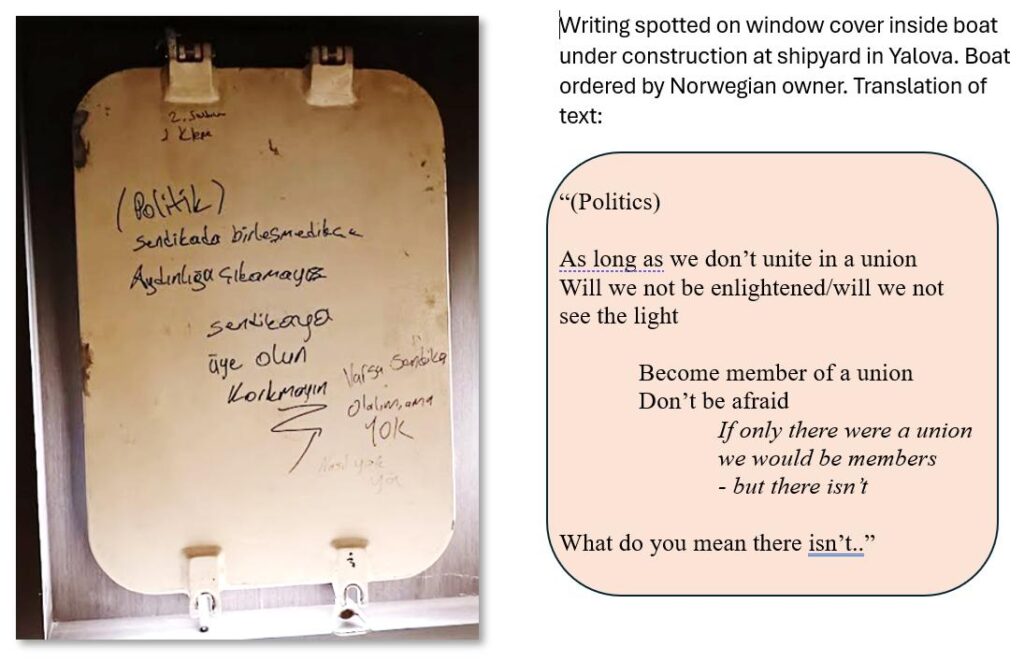 2.
(Politik)
Sendikada birleşmedikçe
Aydınlığa Çıkamayız
sendikaya
üye olun
Korkmayın
Varsa Sendika
Olalım, ama
YOK
Nasıl yok
ya
Writing spotted on window cover inside boat
under construction at shipyard in Yalova. Boat
ordered by Norwegian owner. Translation of
text:
“(Politics)
As long as we don’t unite in a union
Will we not be enlightened/will we not
see the light
Become member of a union
Don’t be afraid
If only there were a union
we would be members
- but there isn’t
What do you mean there isn’t..”